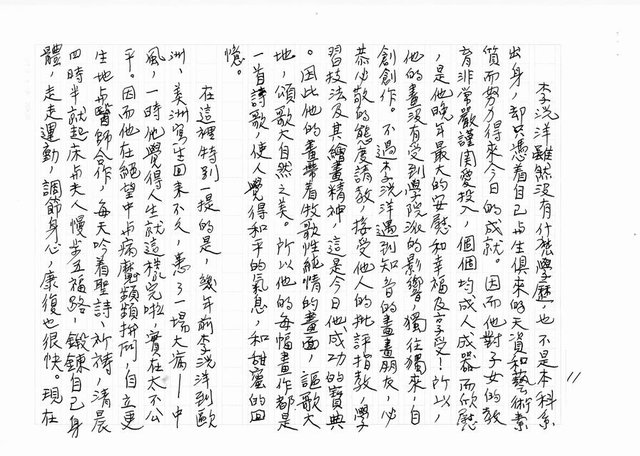 11
李浣洋雖然沒有什麼學歷，也不是本科系
出身，却只憑着自己与生俱來的天資和藝術素
質而努力得來今日的成就。因而他對子女的教
育非常嚴謹関愛投入，個個均成人成器而欣慰
，是他晚年最大的安慰和幸福及享受！所以，
他的畫沒有受到學院派的影響，獨往獨來，自
創創作。不過李浣洋遇到知音的畫畫朋友，必
恭必敬的態度請教，接受他人的批評指教，學
習技法及其繪畫精神，這是今日他成功的寶典
。因此他的畫帶着牧歌性純情的畫面，謳歌大
地，頌歌大自然之美。所以他的每幅畫作都是
一首詩歌，使人覺得和平的氣息，和甜蜜的回
憶。
在這裡特別一提的是，幾年前李浣洋到歐
洲、美洲寫生回來不久，患了一場大病—中
風，一時他覺得人生就這樣完啦，實在太不公
平。因而他在絕望中与病魔頻頻拼鬥，自立更
生地与醫師合作，每天吟着聖詩、祈禱，清晨
四時半就起床与夫人慢步五福路，鍛鍊自己身
體，走走運動，調節身心，康復也很快。現在